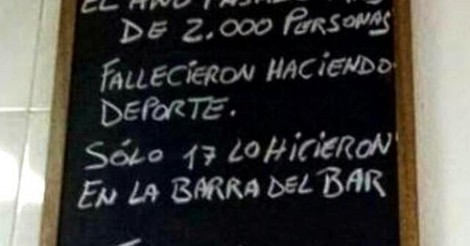 EL AÑO PASADO MÁS
DE 2.000 PERSONAS
FALLECIERON HACIENDO
DEPORTE.
SÓLO 17 LO HICIERON
EN LA BARRA DEL BAR